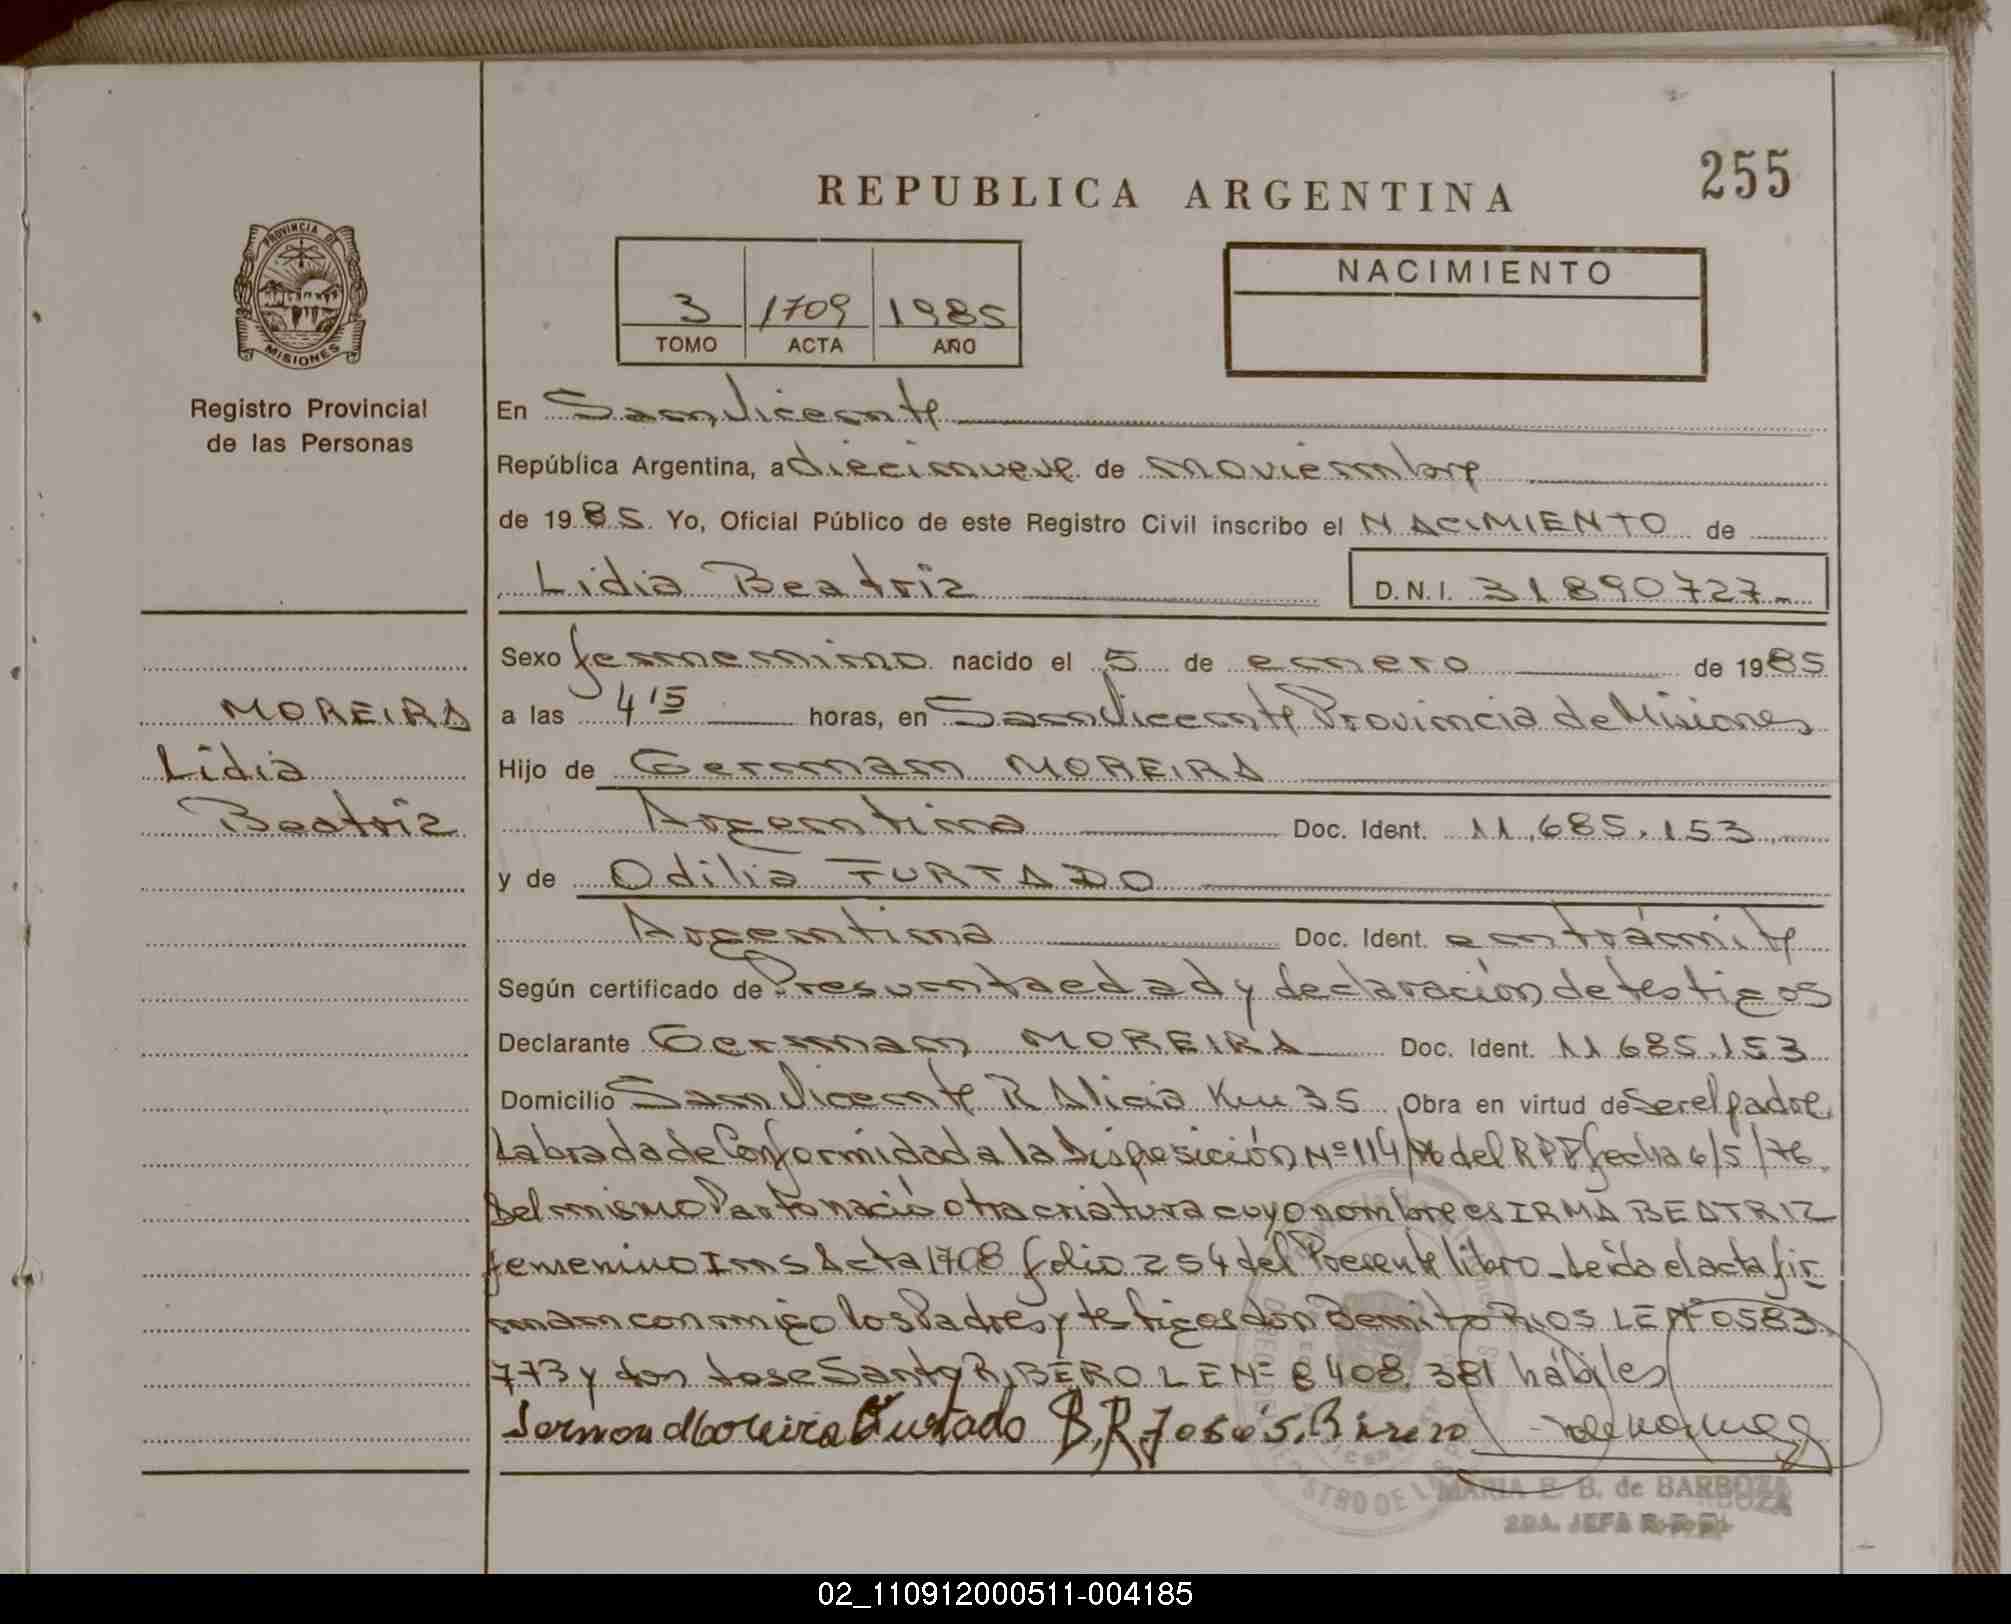 255
REPUBLICA ARGENTINA
PROVINCIA DE
MISIONES
Registro Provincial
de las Personas
3 1709 1985
TOMO ACTA AÑO
NACIMIENTO
En San Vicente
República Argentina, a diecinueve de noviembre
de 1985. Yo, Oficial Público de este Registro Civil inscribo el NACIMIENTO de
Lidia Beatriz D.N.I. 31890727
Sexo femenino nacido el 5 de enero de 1985
MOREIRA
Lidia
Beatriz
a las 4 15 horas, en San Vicente Provincia de Misiones
Hijo de German MOREIRA
Argentina Doc. Ident. 11.685.153
y de Odilia FURTADO
Argentina Doc. Ident. en trámite
Según certificado de Presunta edad y declaración de testigos
Declarante German MOREIRA Doc. Ident. 11 685.153
Domicilio San Vicente R Alicia Km 35 Obra en virtud de Ser el padre
Labrada de Conformidad a la Disposición Nº 114/76 del RPP fecha 6/5/76.
Del mismo Parto nació otra criatura cuyo nombre es IRMA BEATRIZ
femenino Ins Acta 1708 folio 254 del Presente libro_Leída el acta fir
man conmigo los Padres y testigos don Benito RIOS LE Nº 0583
773 y don Jose Santo RIBERO LE Nº 8408.381 hábiles
German Moreira O Furtado B.R. José S. Rivero
MARIA E. B. de BARBOZA
2DA. JEFA R.P.P.
02_110912000511-004185